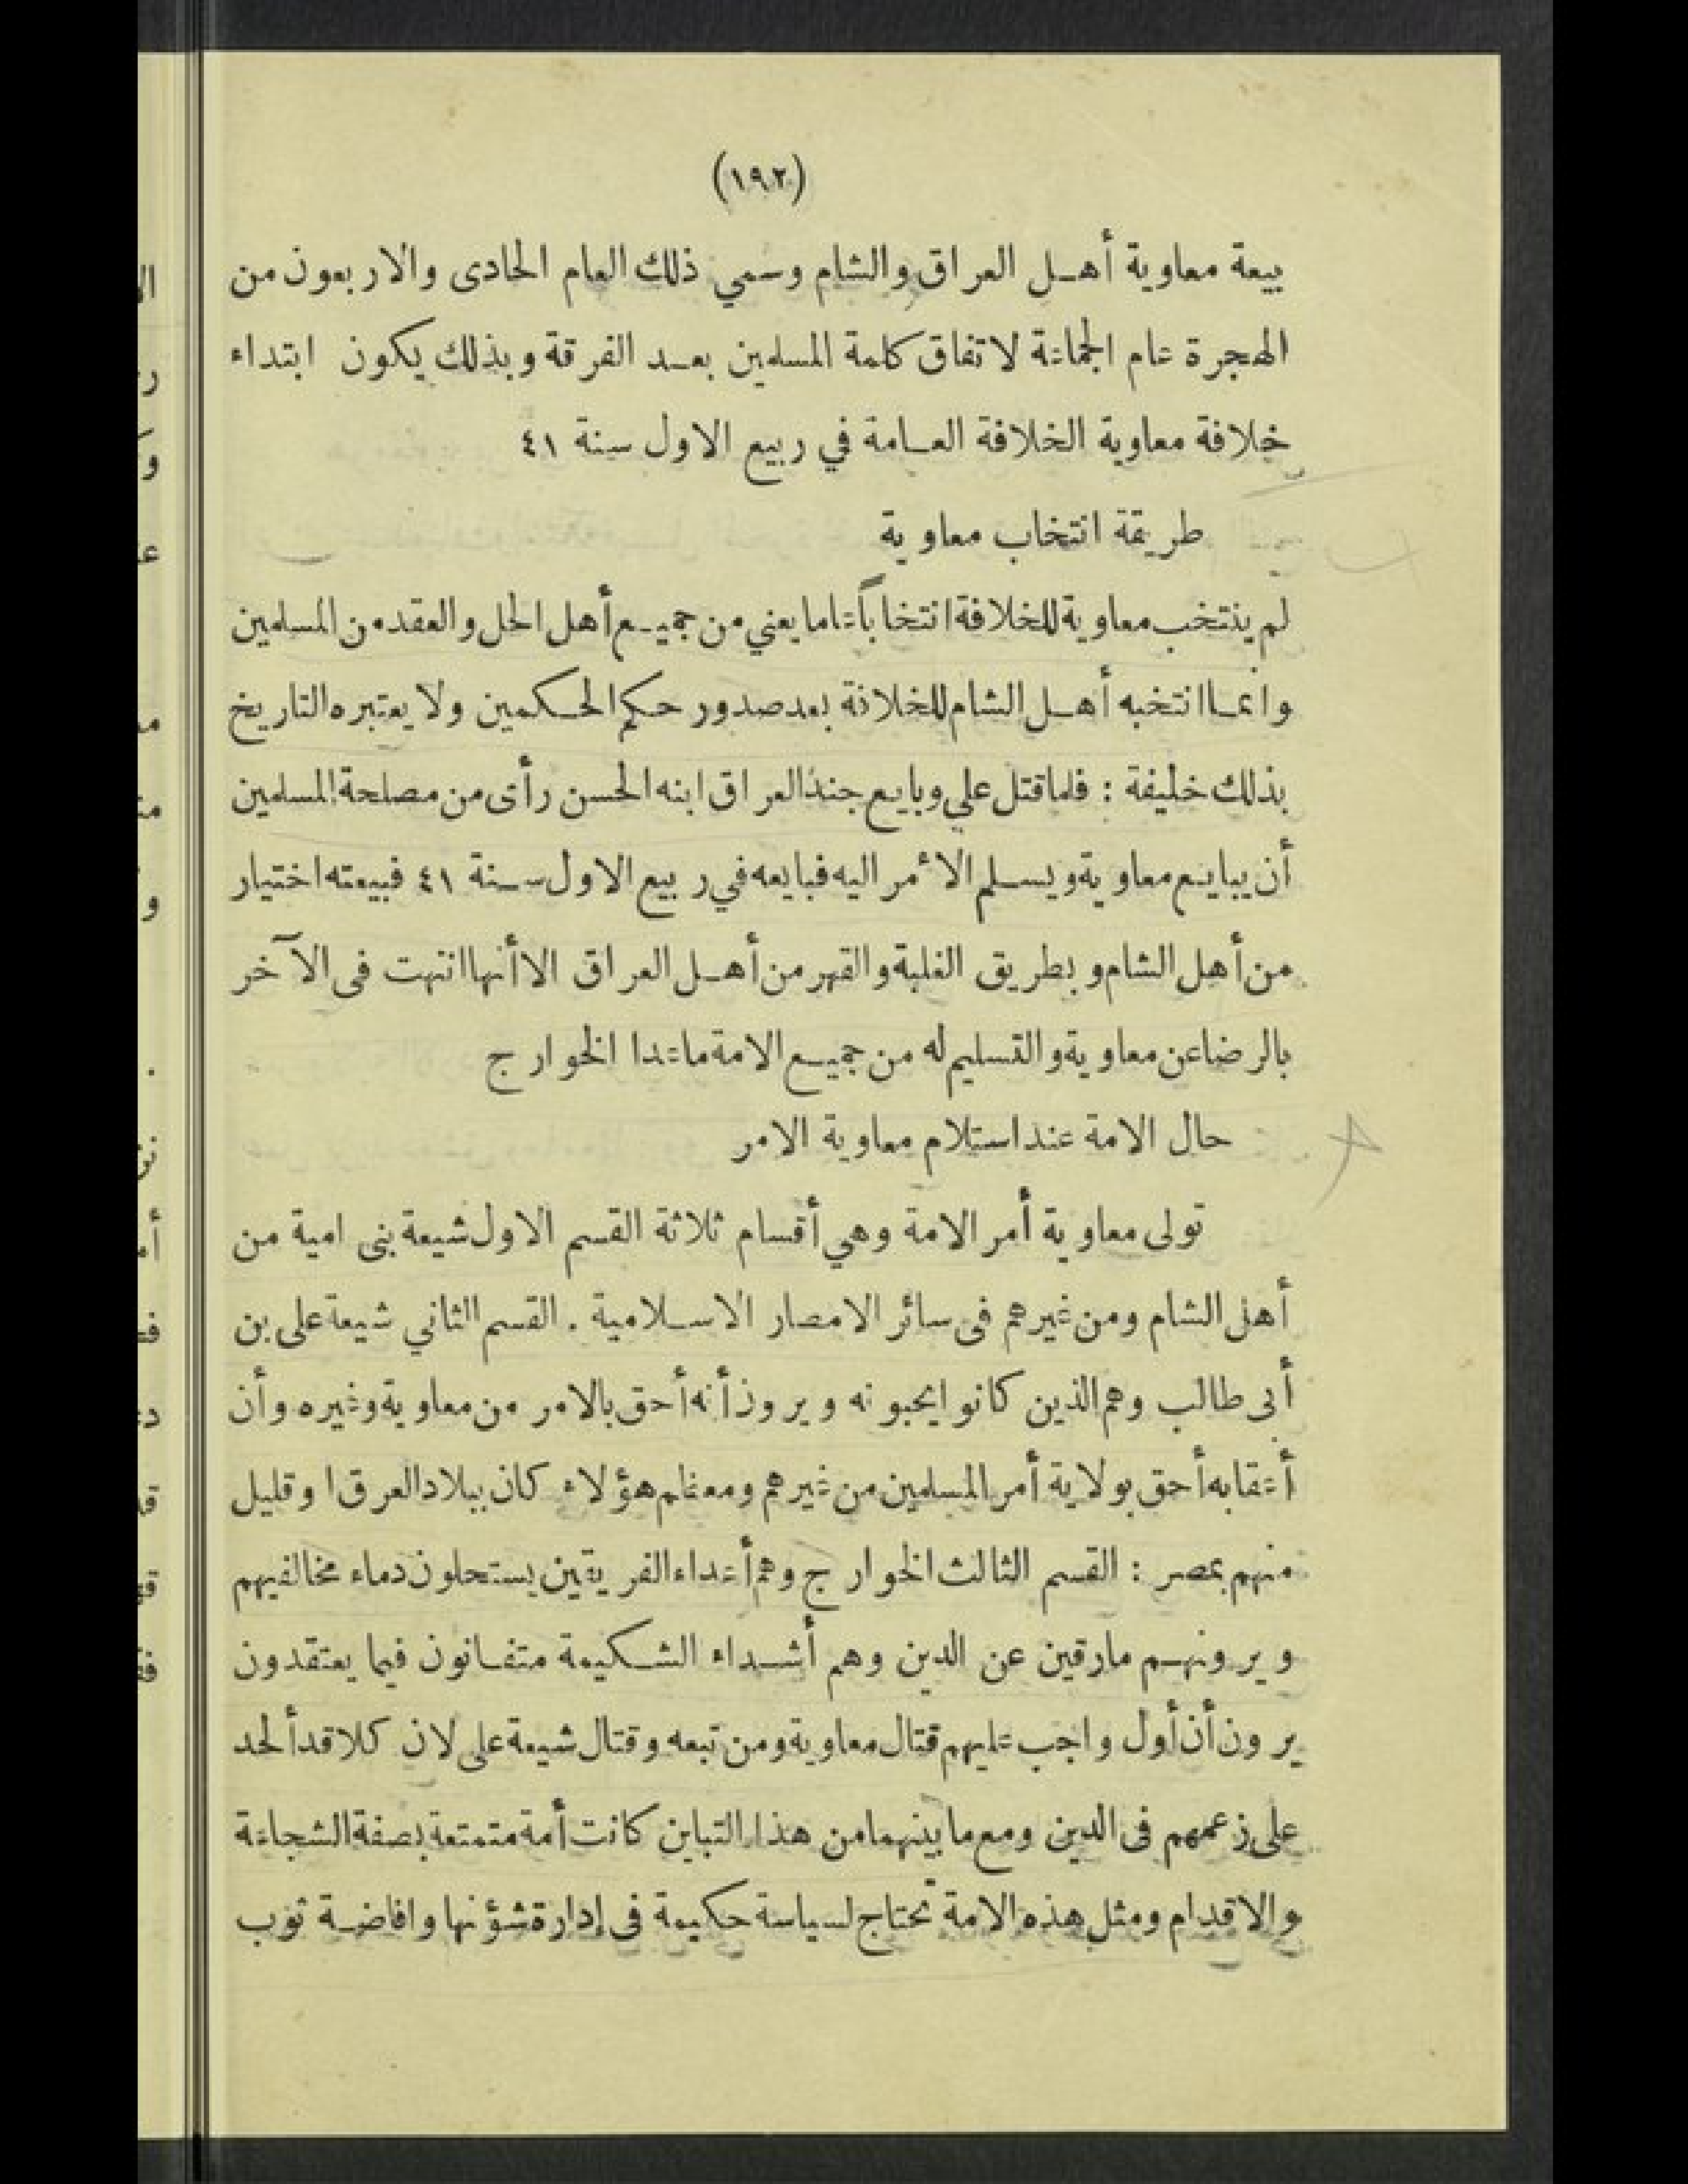 (١٩٢)
بيعة معاوية أهل العراق والشام وسمي ذلك العام الحادى والاربعون من
الهجرة عام الجماعة لاتفاق كلمة المسلمين بعد الفرقة وبذلك يكون ابتداء
خلافة معاوية الخلافة العامة في ربيع الاول سنة ٤١
طريقة انتخاب معاوية
لم ينتخب معاوية للخلافة انتخاباً تاما يعني من جميع أهل الحل والعقد من المسلمين
وانما انتخبه أهل الشام للخلافة بعد صدور حكم الحكمين ولا يعتبره التاريخ
بذلك خليفة : فلما قتل علي وبايع جند العراق ابنه الحسن رأى من مصلحة المسلمين
أن يبايع معاوية ويسلم الأمر اليه فبايعه في ربيع الاول سنة ٤١ فبيعته اختيار
من أهل الشام وبطريق الغلبة والقهر من أهل العراق الا أنها انتهت فى الآخر
بالرضا عن معاوية والتسليم له من جميع الامة ما عدا الخوارج
حال الامة عند استلام معاوية الامر
تولى معاوية أمر الامة وهي أقسام ثلاثة القسم الاول شيعة بنى امية من
أهل الشام ومن غيرهم فى سائر الامصار الاسلامية . القسم الثاني شيعة على بن
أبى طالب وهم الذين كانوا يحبونه ويرون أنه أحق بالامر من معاوية وغيره وأن
أعقابه أحق بولاية أمر المسلمين من غيرهم ومعظم هؤلاء كان ببلاد العرق ا وقليل
منهم بمصر : القسم الثالث الخوارج وهم أعداء الفريقين يستحلون دماء مخالفيهم
ويرونهم مارقين عن الدين وهم أشداء الشكيمة متفانون فيما يعتقدون
يرون أن أول واجب عليهم قتال معاوية ومن تبعه وقتال شيعة على لان كلا قد ألحد
على زعمهم فى الدين ومع ما بينهما من هذا التباين كانت أمة متمتعة بصفة الشجاعة
والاقدام ومثل هذه الامة تحتاج لسياسة حكيمة فى إدارة شؤنها وافاضة ثوب